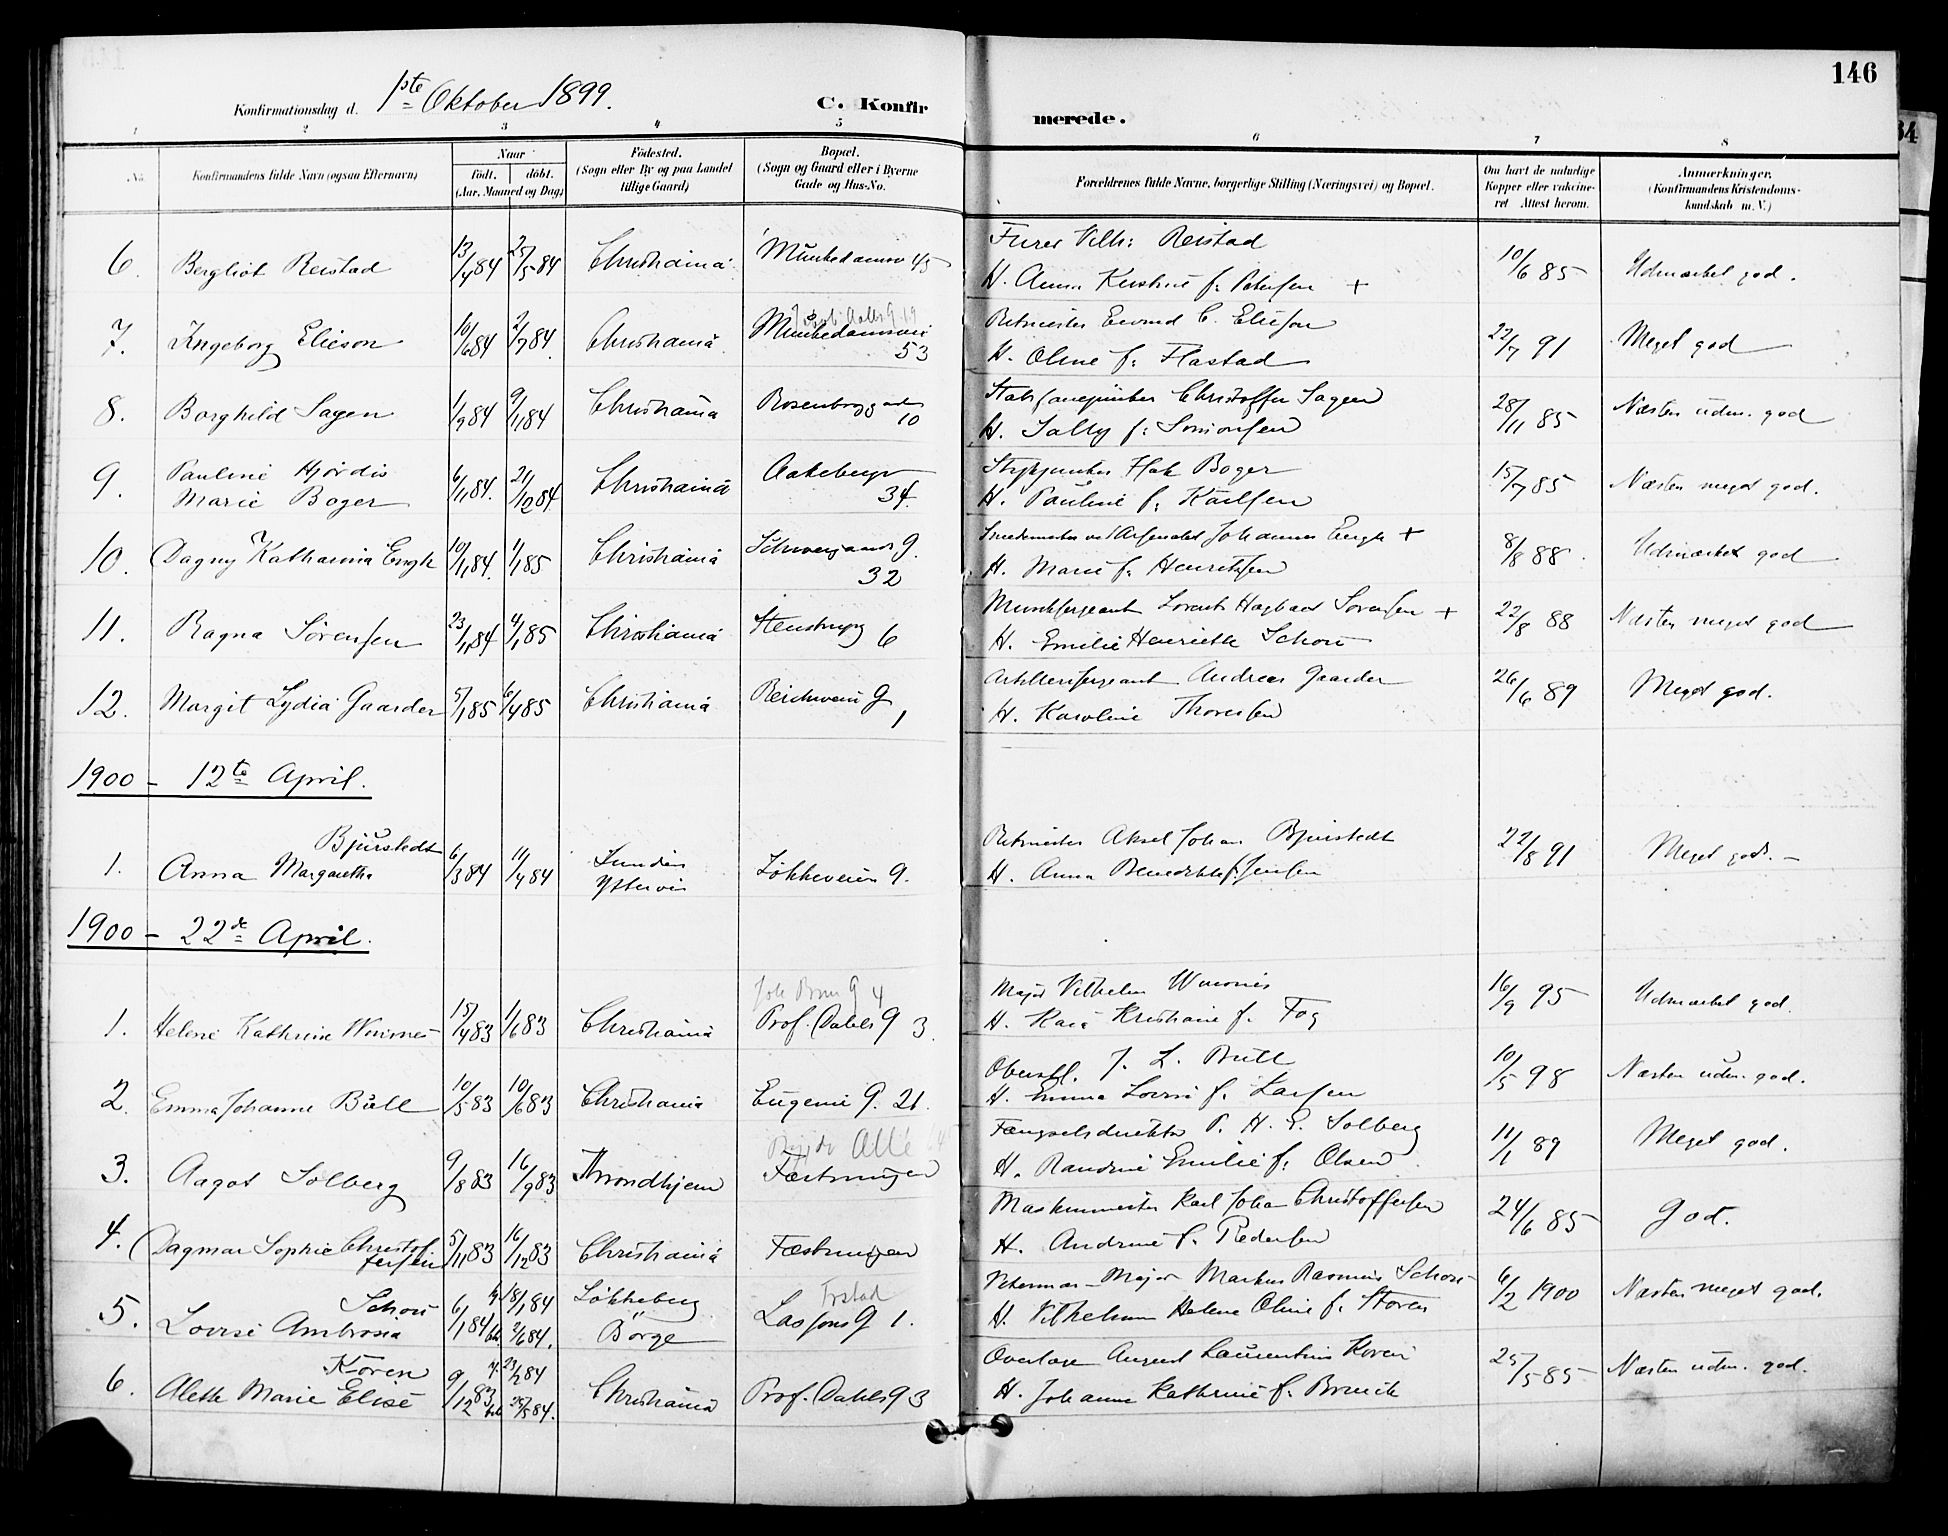 146
Konfirmationsdag d. 1ste Oktober 1899. C. Konfirmerede.
1 2 3 4 5 6 7 8
No. Konfirmandens fulde Navn (ogsaa Efternavn) Naar født. døbt. (Aar, Maaned og Dag) Fødested. (Sogn eller By og paa Landet tillige Gaard) Bopæl. (Sogn og Gaard eller i Byerne Gade og Hus-No. Forældrenes fulde Navne, borgerlige Stilling (Næringsvei) og Bopæl. Om havt de naturlige Kopper eller vakcineret Attest herom. Anmærkninger. (Konfirmandens Kristendomskundskab m. V.)
6. Bergliot Reistad 13/4 84 25/5 84 Christiania Munkedamsv 45 Furer Vilh: Reistad 10/6 85 Udmærket god.
H. Anna Kristine f: Petersen +
7. Ingeborg Elieson 10/6 84 2/7 84. Christiania Munkedamsvei 53 Ritmester Eivind C. Elieson 22/7 91 Meget god
H. Oline f: Flastad
8. Borghild Sagen 1/9 84 9/11 84 Christiania Rosenborggaden 10 Christoffer Sagen 28/11 85 Næsten udm. god
H. Sally f: Simonsen
9. Pauline Hjørdis Marie Boger 6/11 84. 21/12 84 Christiania Aakebergv 34. Stykjunker Hak Boger 15/7 85 Næsten meget god.
H. Pauline f: Karlsen
10. Dagny Katharina Engh 10/11 84. 1/1 85 Christiania Schweigaards G. 32 Smedemester ved Arsenalet Johannes Engh + 8/8 88. Udmærket god
H. Marie f: Henriksen
11. Ragna Sørensen 23/11 84 4/1 85 Christiania Stenstrupg 6 Lorents Hagbart Sørensen + 22/8 88 Næsten meget god
H. Emilie Henriette Schou
12. Margit Lydia Gaarder 5/1 85 6/4 85 Christiania Reichwein G 1 Artillerisergeant Andreas Gaarder 26/6 89 Meget god.
H. Karoline Thoresen
1900 - 12te April.
1. Anna Margaretha Bjurstedt 6/3 84 11/4 84 Løkkeveien 9. Ritmester Aksel Johan Bjurstedt 22/8 91 Meget god. -
H. Anna Benedikte f. Jensen
1900 - 22de April.
1. Helene Kathrine 15/4 83 1/6 83 Christiania Prof. Dahls G 3. Major Vilhelm 16/9 95 Udmærket god.
H. Kaia Kristiane f. Fog
2. Emma Johanne Bull 10/5 83 10/6 83 Christiania Eugenie G. 21. Oberstl. J. L. Bull 10/5 98 Næsten udm. god.
H. Emma Lovise f. Larsen
3. Aagot Solberg 9/8 83 16/9 83 Throndhjem Fæstningen Fængselsdirektør P. H. E. Solberg 11/1 89 Meget god.
H. Randine Emilie f: Olsen
4. Dagmar Sophie Christoffersen 5/11 83 16/12 83 Christiania Fæstningen Maskinmester Karl Johan Christoffersen 24/6 85 God.
H. Andrine f. Pedersen
5. Lovise Ambrosia Schou 6/1 84 18/1 84 2/6 84. Løkkeberg Børge Lassons G 1. Veterinær-Major Markus Rasmus Schou 6/2 1900 Næsten meget god.
H. Vilhelmine Helene Oline f. Storen
6. Alette Marie Elise Koren 9/12 83 23/2 84 25/5 84. Christiania Prof. Dahls G 3 Overlæge August Laurentius Koren 25/5 85 Næsten udm. god.
H. Johanne Kathrine f: Brinch